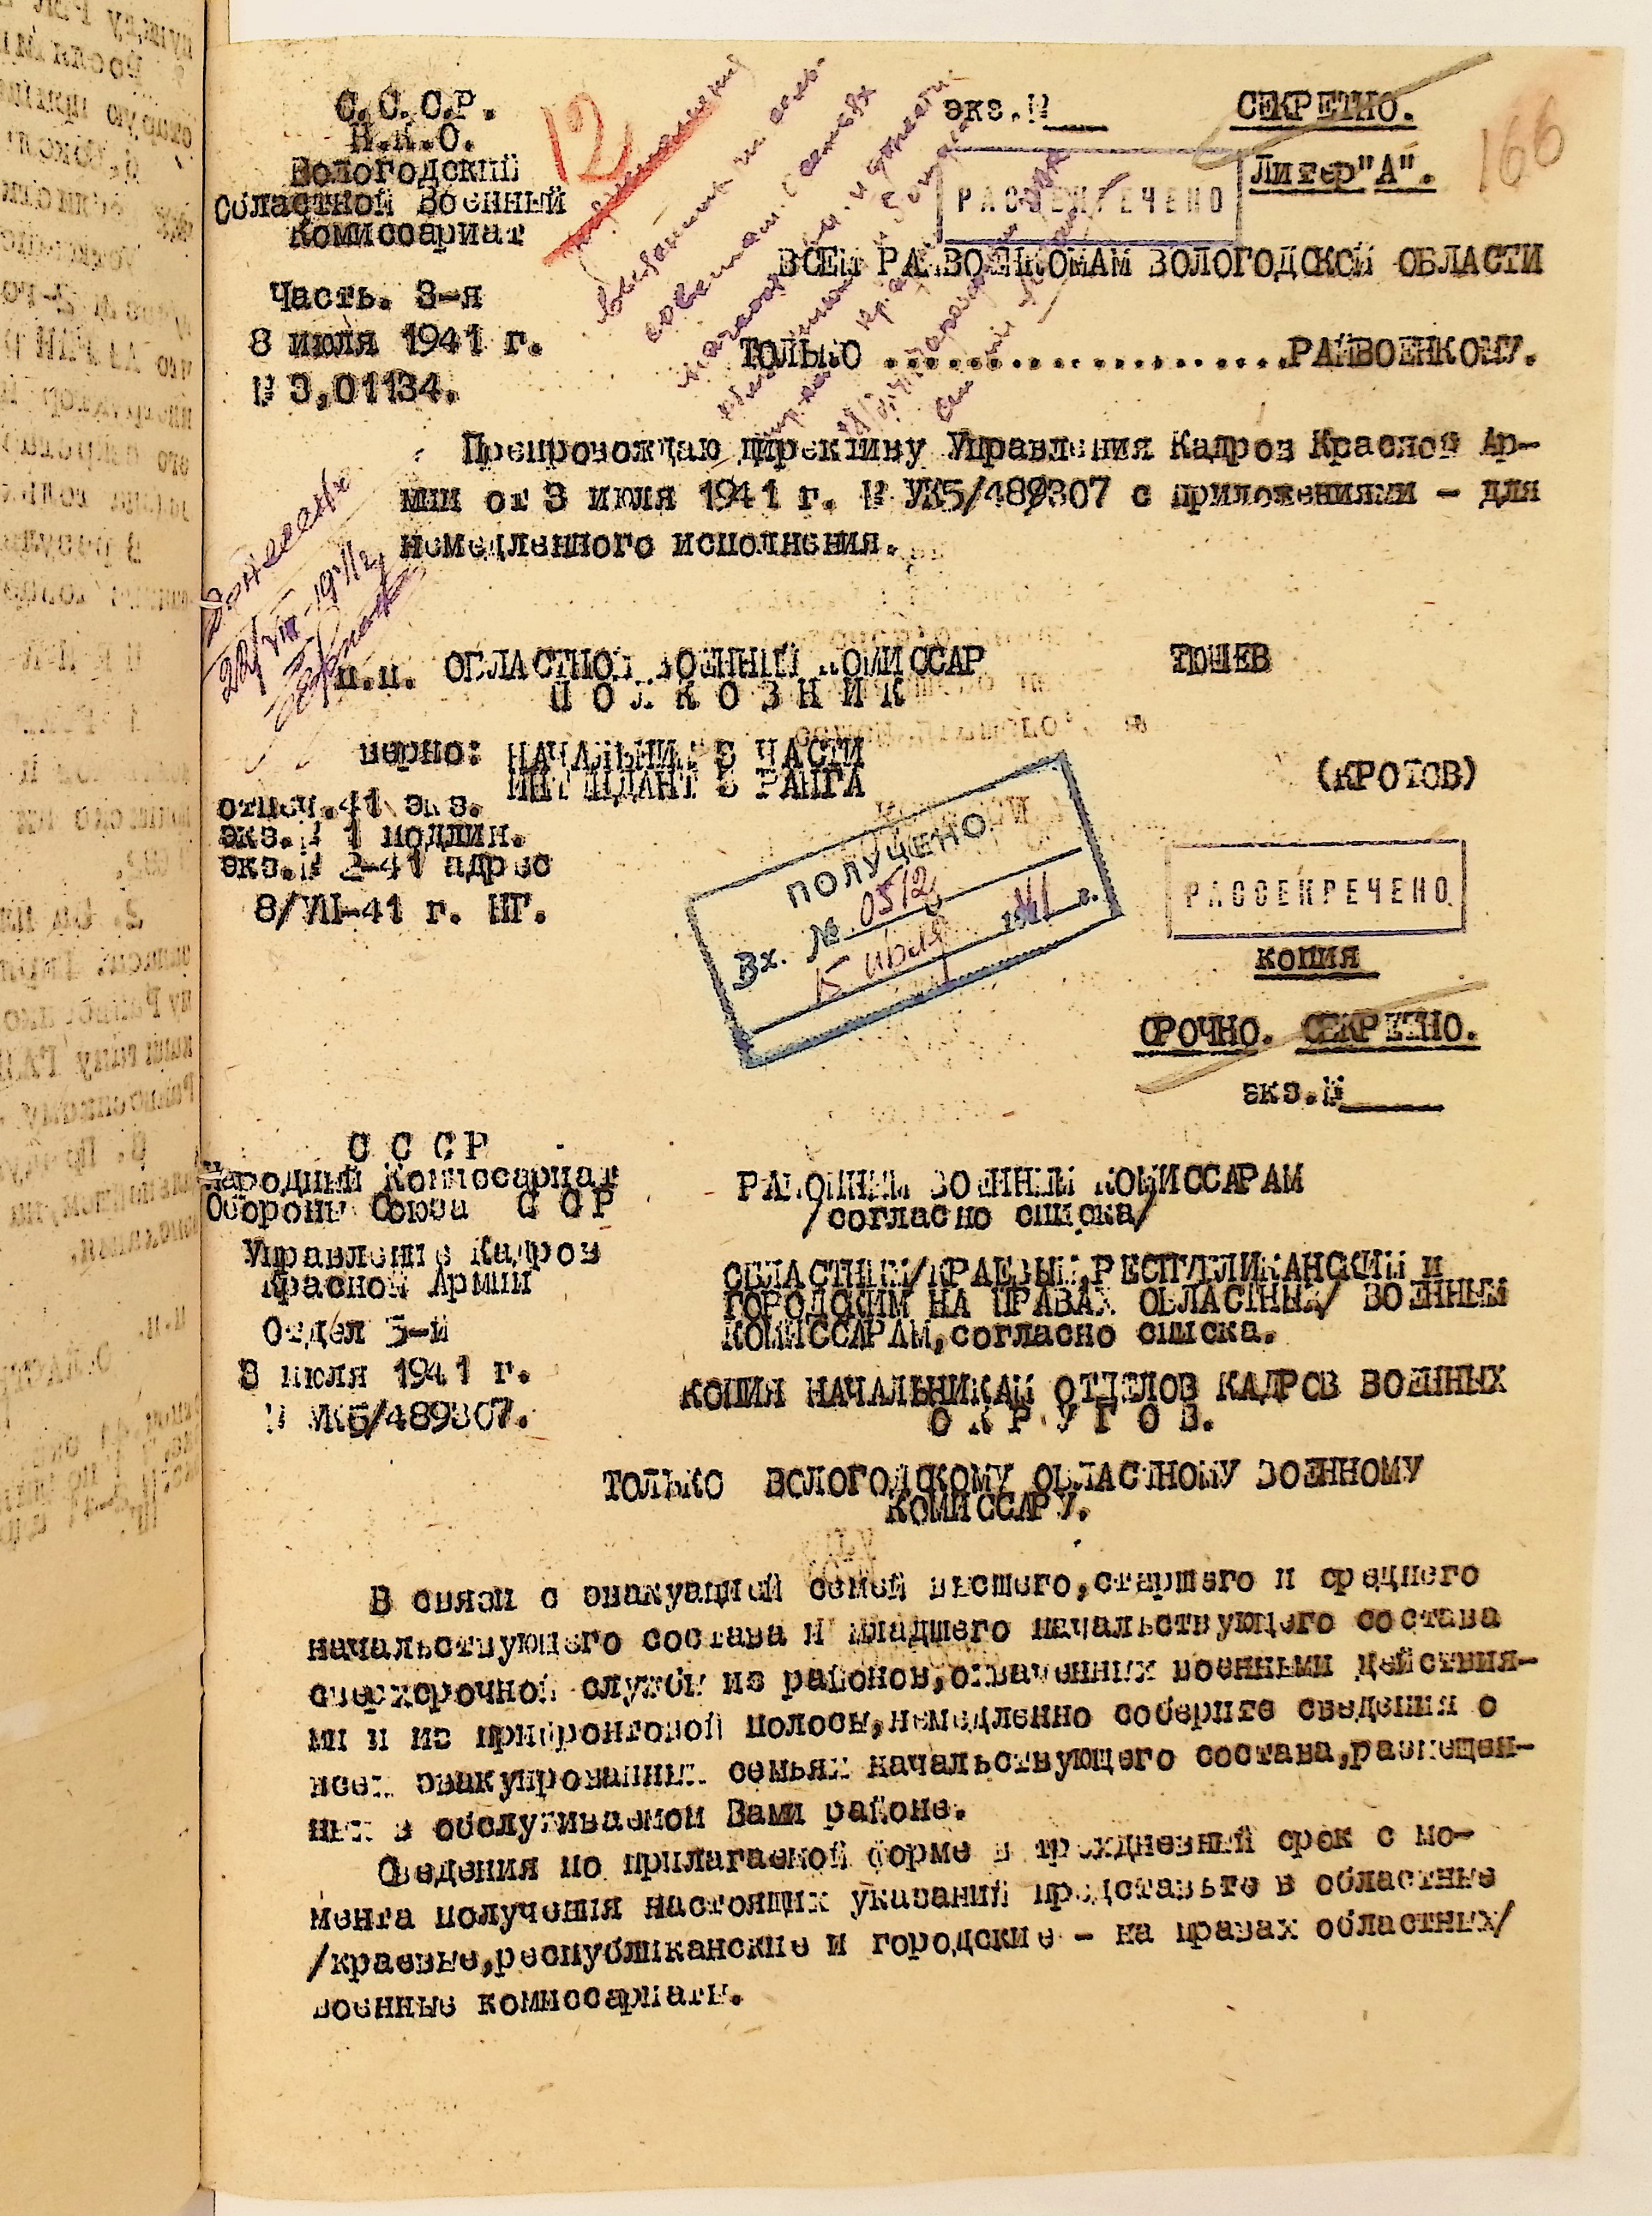 С.С.С.Р.
Н.К.О.
Вологодский
Областной Военный
Комиссариат
Часть. 3-я
8 июля 1941 г.
№ 3,01134.
12
экз.№
СЕКРЕТНО.
Литер"А".
166
РАССЕКРЕЧЕНО
ВСЕМ РАЙВОЕНКОМАМ ВОЛОГОДСКОЙ ОБЛАСТИ
ТОЛЬКО .....................РАЙВОЕНКОМУ.
Препровождаю директиву Управления Кадров Красной Ар-
мии от 3 июля 1941 г. № УК5/489307 с приложениями - для
немедленного исполнения.
п.п. ОБЛАСТНОЙ ВОЕННЫЙ КОМИССАР ТЮШЕВ
П О Л К О В Н И К
верно: НАЧАЛЬНИК 3 ЧАСТИ
ИНТЕНДАНТ 3 РАНГА (КРОТОВ)
отпеч.41 экз.
экз.№ 1 подлин.
экз.№ 2-41 адрес
8/VII-41 г. НГ.
ПОЛУЧЕНО
Вх. № 0512
15 июля 1941 г.
РАССЕКРЕЧЕНО
КОПИЯ
СРОЧНО. СЕКРЕТНО.
экз.№
С С С Р
Народный Комиссариат
Обороны Союза С С Р
Управление Кадров
Красной Армии
Отдел 5-й
3 июля 1941 г.
№ УК5/489307.
РАЙОННЫМ ВОЕННЫМ КОМИССАРАМ
/согласно списка/
ОБЛАСТНЫМ/КРАЕВЫМ,РЕСПУБЛИКАНСКИМ и
ГОРОДСКИМ НА ПРАВАХ ОБЛАСТНЫХ/ ВОЕННЫМ
КОМИССАРАМ,согласно списка.
КОПИЯ НАЧАЛЬНИКАМ ОТДЕЛОВ КАДРОВ ВОЕННЫХ
О К Р У Г О В.
ТОЛЬКО ВОЛОГОДСКОМУ ОБЛАСТНОМУ ВОЕННОМУ
КОМИССАРУ.
В связи с эвакуацией семей высшего,старшего и среднего
начальствующего состава и младшего начальствующего состава
сверхсрочной службы из районов,охваченных военными действия-
ми и из прифронтовой полосы,немедленно соберите сведения о
всех эвакуированных семьях начальствующего состава,размещен-
ных в обслуживаемом Вами районе.
Сведения по прилагаемой форме в трехдневный срок с мо-
мента получения настоящих указаний представьте в областные
/краевые,республиканские и городские - на правах областных/
военные комиссариаты.